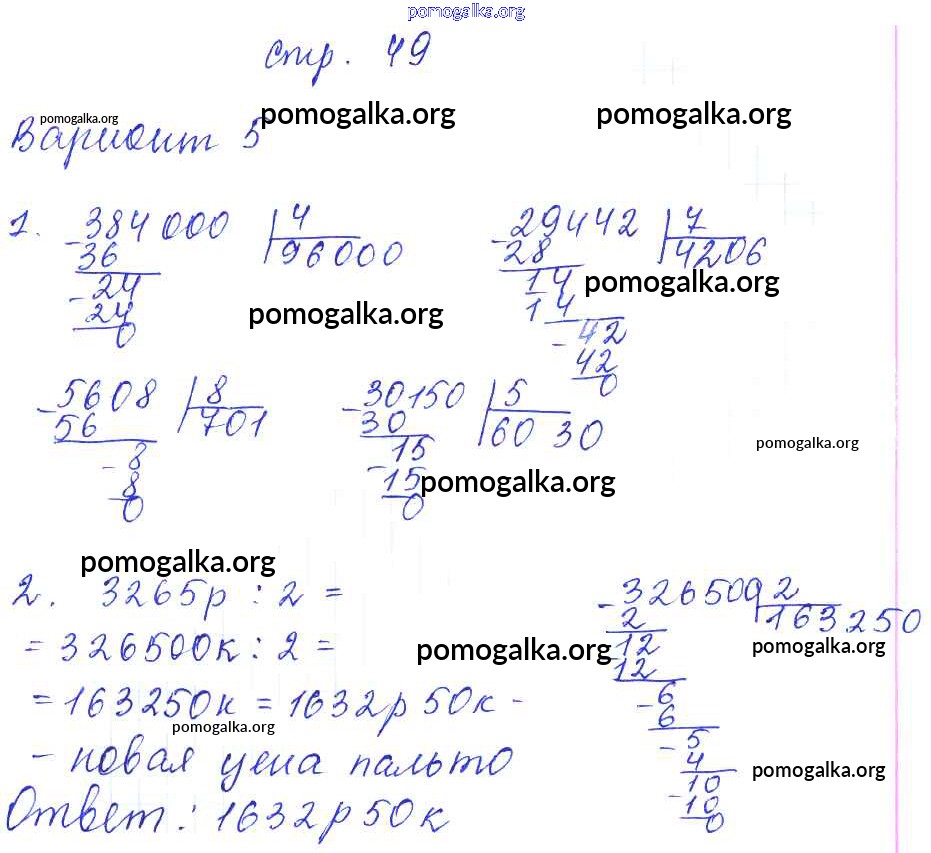 pomogalka.org
стр. 49
pomogalka.org pomogalka.org pomogalka.org
Вариант 5
1. 384000 | 4 29442 | 7
- 36 96000 - 28 4206
- 24 14 pomogalka.org
24 pomogalka.org 14
0 - 42
42
0
- 5608 | 8 - 30150 | 5
56 701 30 6030
- 8 15 pomogalka.org
8 - 15 pomogalka.org
0 0
pomogalka.org
2. 3265р : 2 = - 326500 | 2
= 326500к : 2 = 2 163250
pomogalka.org 12 pomogalka.org
12
= 163250к = 1632р 50к - - 6
pomogalka.org 6
- новая цена пальто - 5
4 pomogalka.org
Ответ: 1632р 50к 10
- 10
0